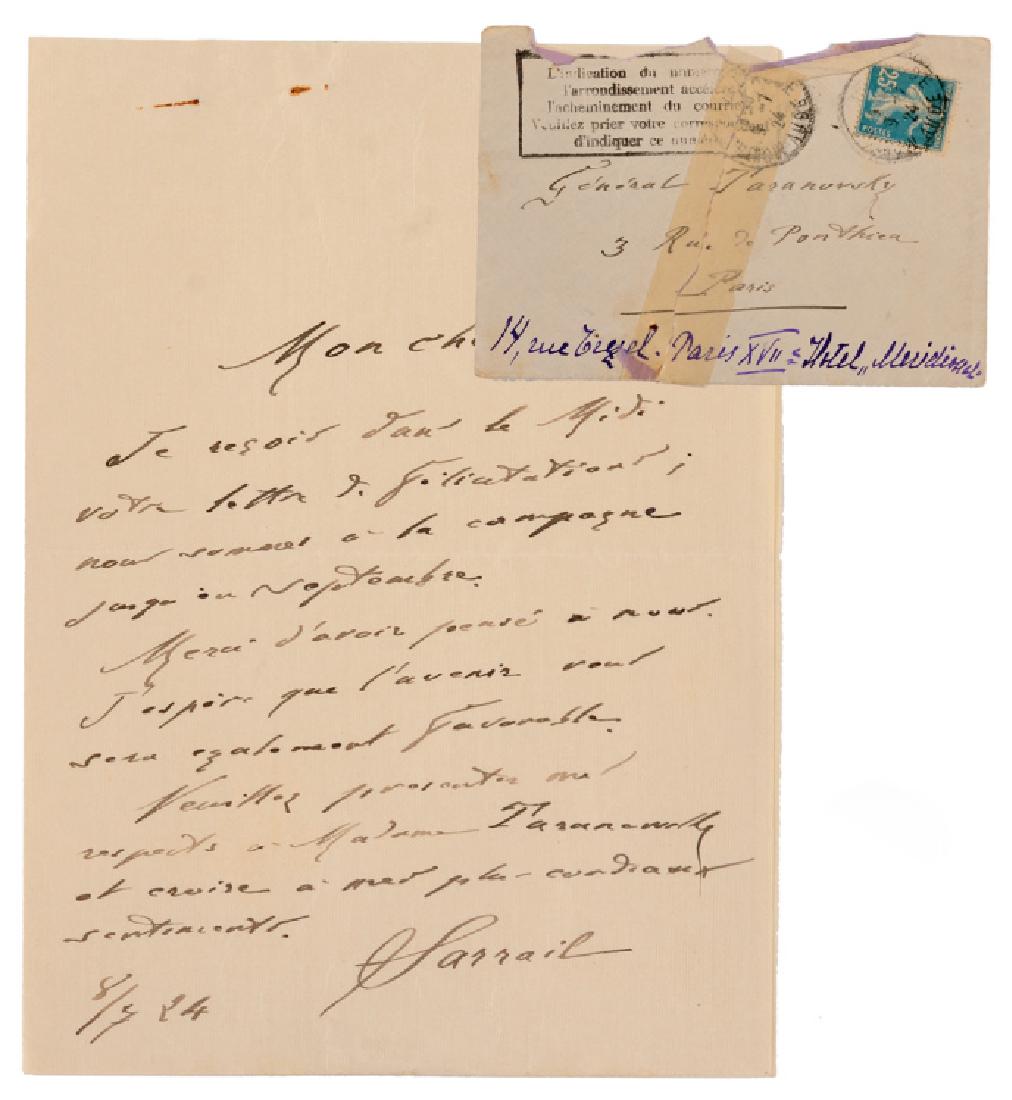 L'indication du numér
l'arrondissement accélèr
l'acheminement du courri
Veuillez prier votre correspondant
d'indiquer ce numér
25
POSTES
24
Général Taranovsky
3 Rue de Ponthieu
Paris
14, rue Paris XVII e Hotel „Meridional
Mon che
Je reçois dans le Midi
votre lettre de félicitations ;
nous sommes à la campagne
jusqu'en septembre.
Merci d'avoir pensé à nous.
J'espère que l'avenir vous
sera également favorable.
Veuillez présenter mes
respects à Madame Taranowsky
et croire à mes plus cordiaux
sentiments.
Sarrail
8/7 24